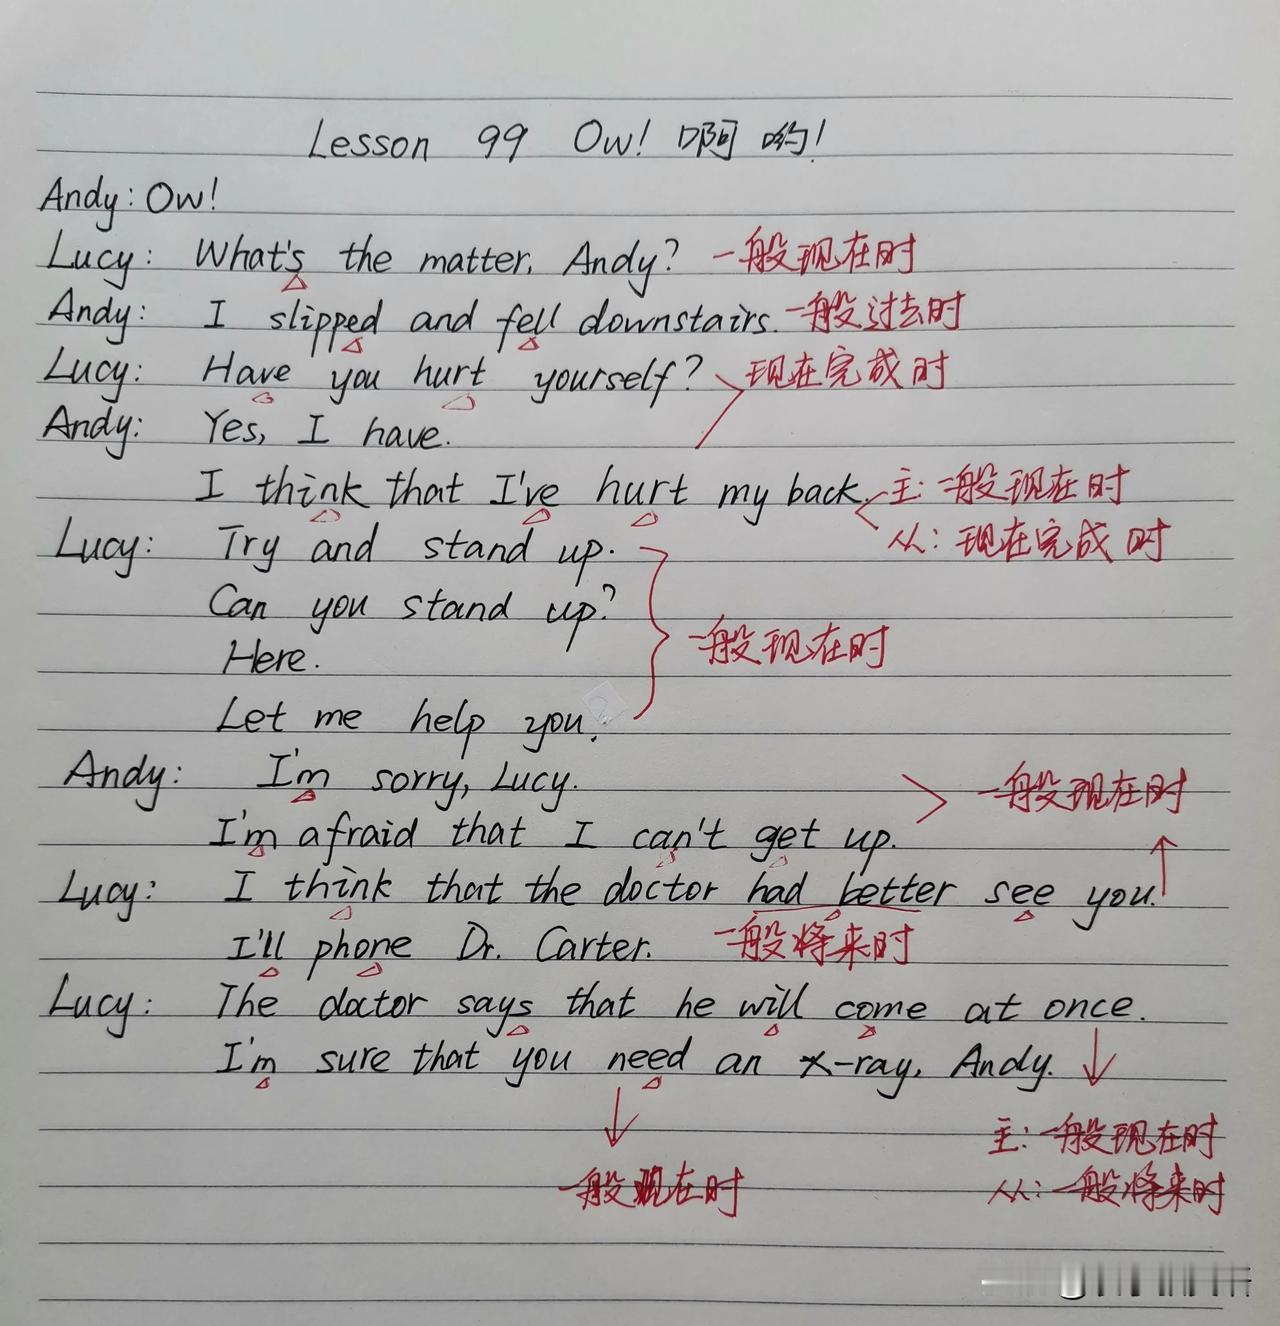 Lesson 99 Ow! 啊哟!
Andy: Ow!
Lucy: What's the matter, Andy? 一般现在时
Andy: I slipped and fell downstairs. 一般过去时
Lucy: Have you hurt yourself? 现在完成时
Andy: Yes, I have.
I think that I've hurt my back. 主: 一般现在时
从: 现在完成时
Lucy: Try and stand up.
Can you stand up?
Here.
一般现在时
Let me help you.
Andy: I'm sorry, Lucy.
一般现在时
I'm afraid that I can't get up.
Lucy: I think that the doctor had better see you.
I'll phone Dr. Carter. 一般将来时
Lucy: The doctor says that he will come at once.
I'm sure that you need an x-ray, Andy.
主: 一般现在时
一般现在时 从: 一般将来时